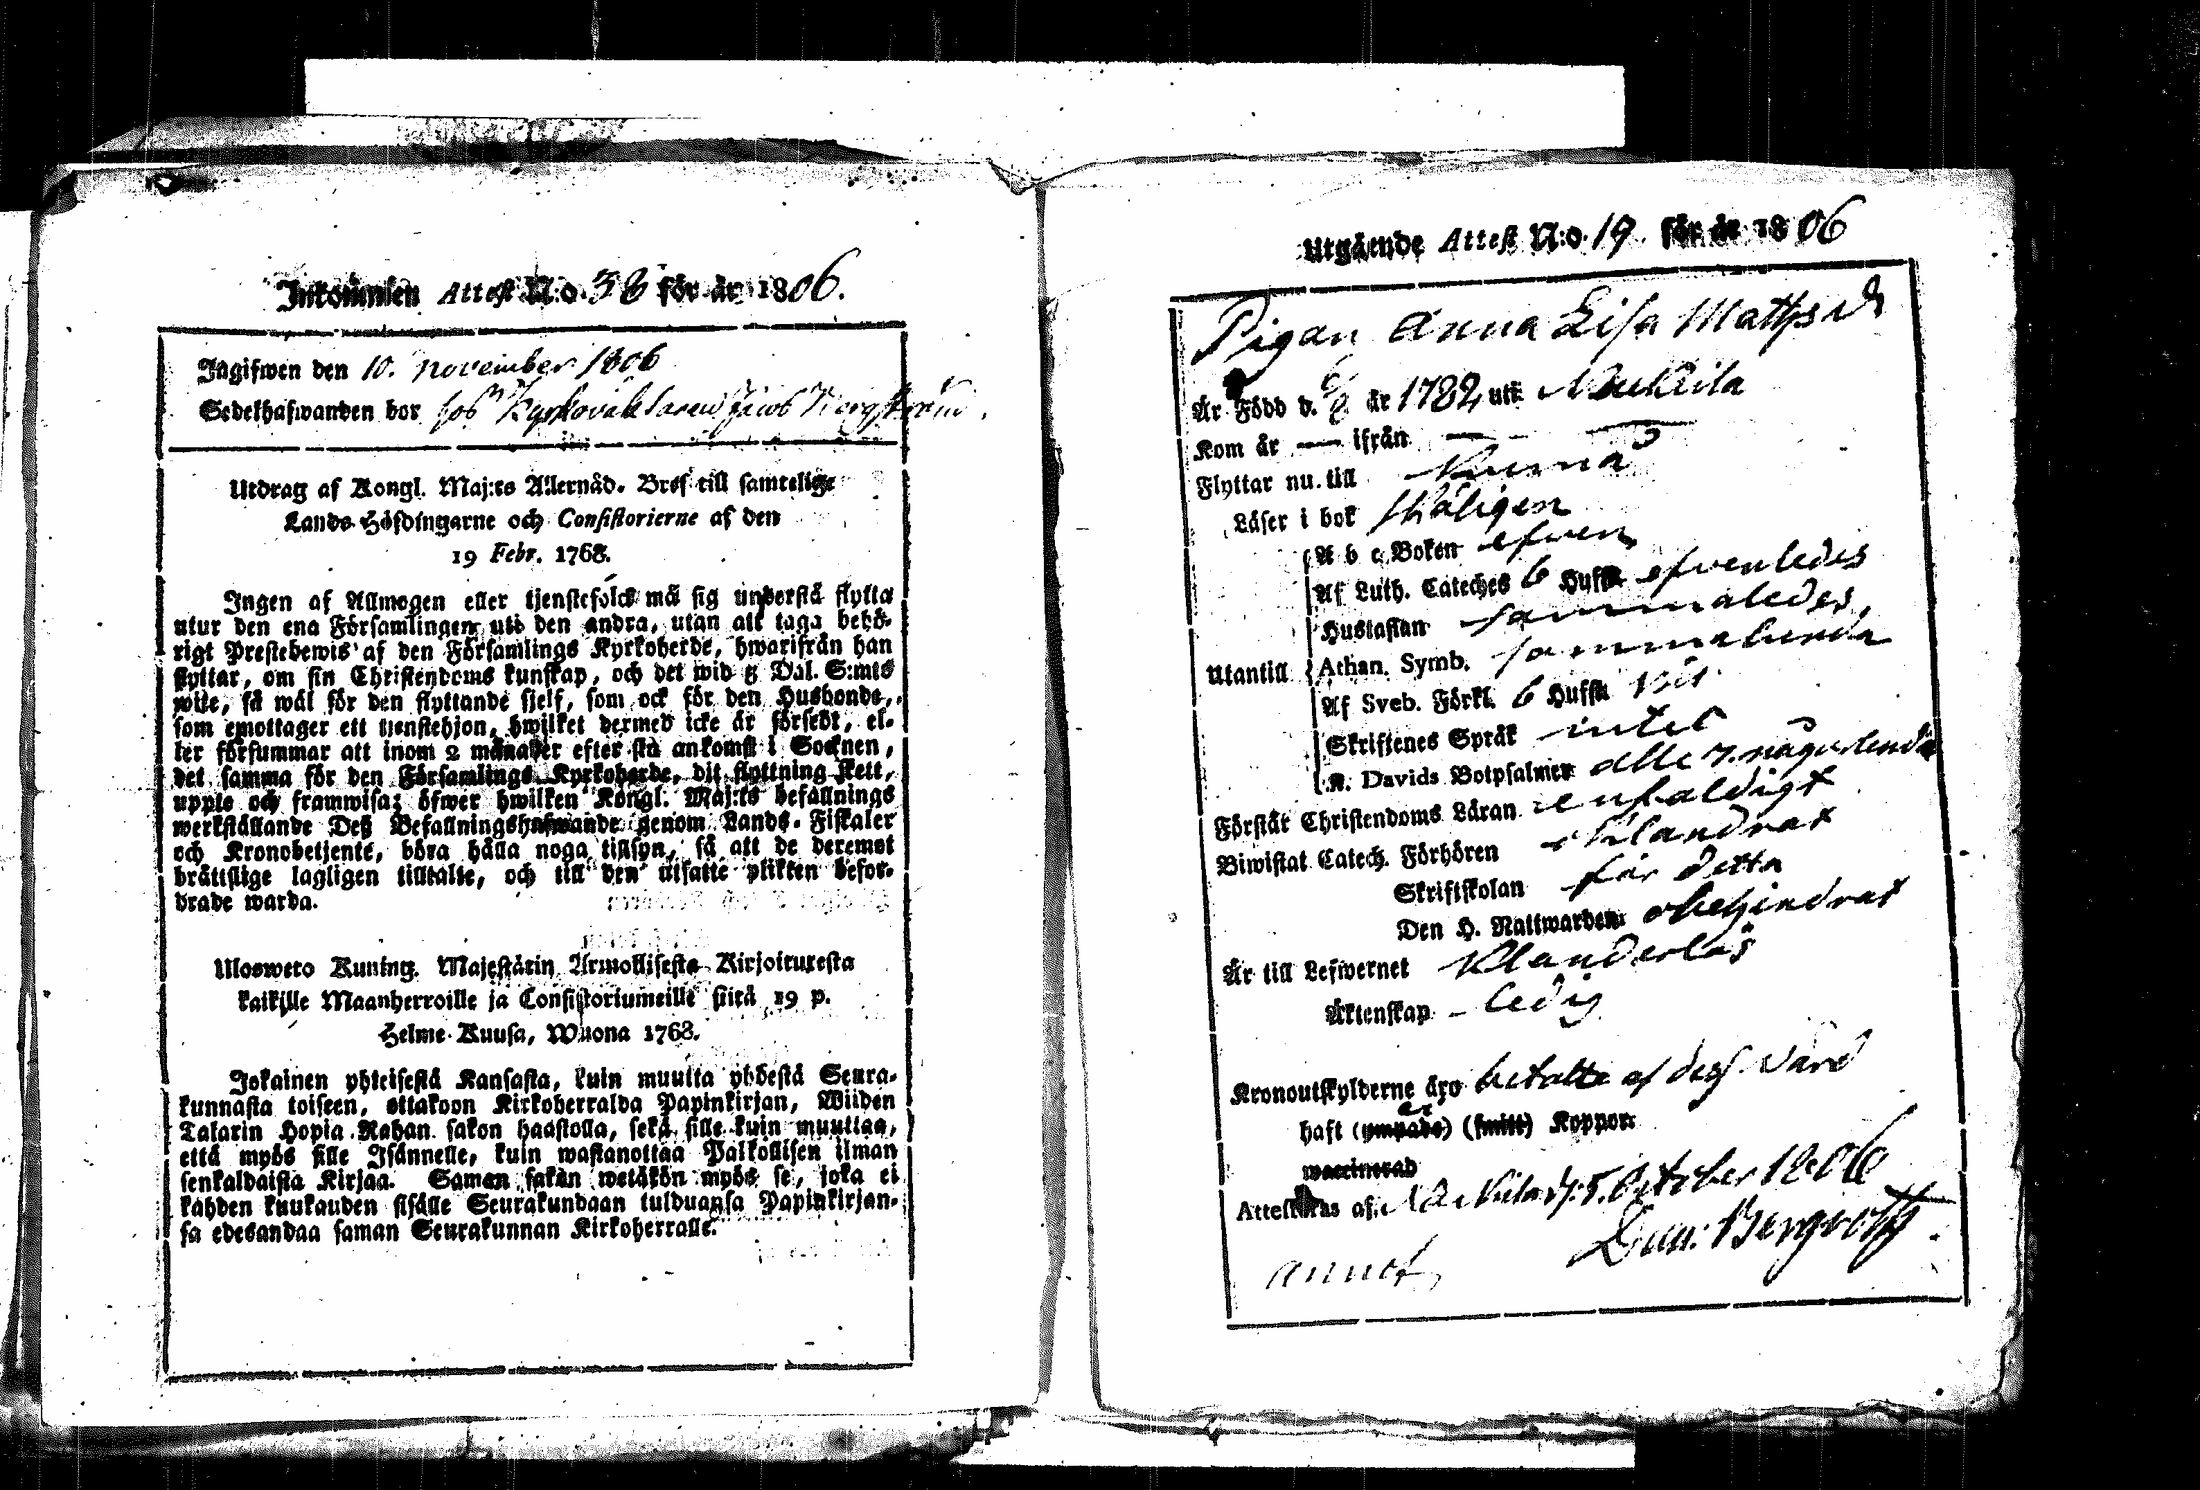 Inkommen Attest N:o 38 för år 1806.
Ingifwen den 10. november 1806
Sedelhafwanden bor hos Kyrkoväktaren Jacob Bergström.
Utdrag af Kongl. Maj:ts Allernåd. Bref till samtelige
Lands-Höfdingarne och Consistorierne af den
19 Febr. 1768.
Ingen af Allmogen eller tjenstefolck må sig understå flytta
utur den ena Församlingen uti den andra, utan att taga behö-
rigt Prestebewis af den Församlings Kyrkoherde, hwarifrån han
flyttar, om sin Christendoms kunskap, och det wid 5 Dal. S:mts
wite, så wäl för den flyttande sjelf, som ock för den Husbonde,
som emottager ett tjenstehjon, hwilket dermed icke är försedt, el-
ler försummar att inom 2 månader efter sin ankomst i Socknen,
det samma för den Församlings Kyrkoherde, dit flyttning skett,
uppte och framwisa; öfwer hwilken Kongl. Maj:ts befallnings
werkställande Deß Befallningshafwande genom Lands-Fiskaler
och Kronobetjente, böra hålla noga tillsyn, så att de deremot
brättslige lagligen tilltalte, och till den utsatte plikten befor-
drade warda.
Uloswето Kuning. Majestätin Armollisesta Kirjoituxesta
kaikille Maanherroille ja Consistoriumeille siitä 19 p.
Helme-Kuusa, Wuona 1768.
Jokainen yhteisestä Kansasta, kuin muutta yhdestä Seura-
kunnasta toiseen, ottakoon Kirkoherralda Papinkirjan, Wiiden
Talarin Hopia Rahan sakon haastolla, sekä sille kuin muuttaa,
että myös sille Isännelle, kuin wastanottaa Palkollisen ilman
senkaldaista Kirjaa. Saman sakan wetäkön myös se, joka ei
kahden kuukauden sisälle Seurakundaan tulduansa Papinkirjan-
sa edesandaa saman Seurakunnan Kirkoherralle.
Utgående Attest N:o 19 för år 1806
Pigan Anna Lisa Matts dr
Är Född d. 6/8 år 1782 uti Nackila
Kom år — ifrån —
Flyttar nu till Kumå
Läser i bok skäligen
A b c Boken äfwen
Af Luth. Cateches 6 Hufst äfwenledes
Hustaflan sammaledes,
Utantill Athan. Symb. sammalunda
Af Sveb. Förkl. 6 Hufst
Skriftenes Språk intet
K. Davids Botpsalmer alla 7. någorlunda
Förstår Christendoms Läran enfaldigt
Biwistat Catech. Förhören oklandrat
Skriftskolan för detta
Den H. Nattwarden obehindrat
Är till Lefwernet Klanderlös
Äktenskap - ledig
Kronoutskylderne äro betalte af dess Värd
haft (ympade) (smitt) Koppor
waccinerad
Attesteras af Nackila d. 5. October 1806
annot. Bergroth.